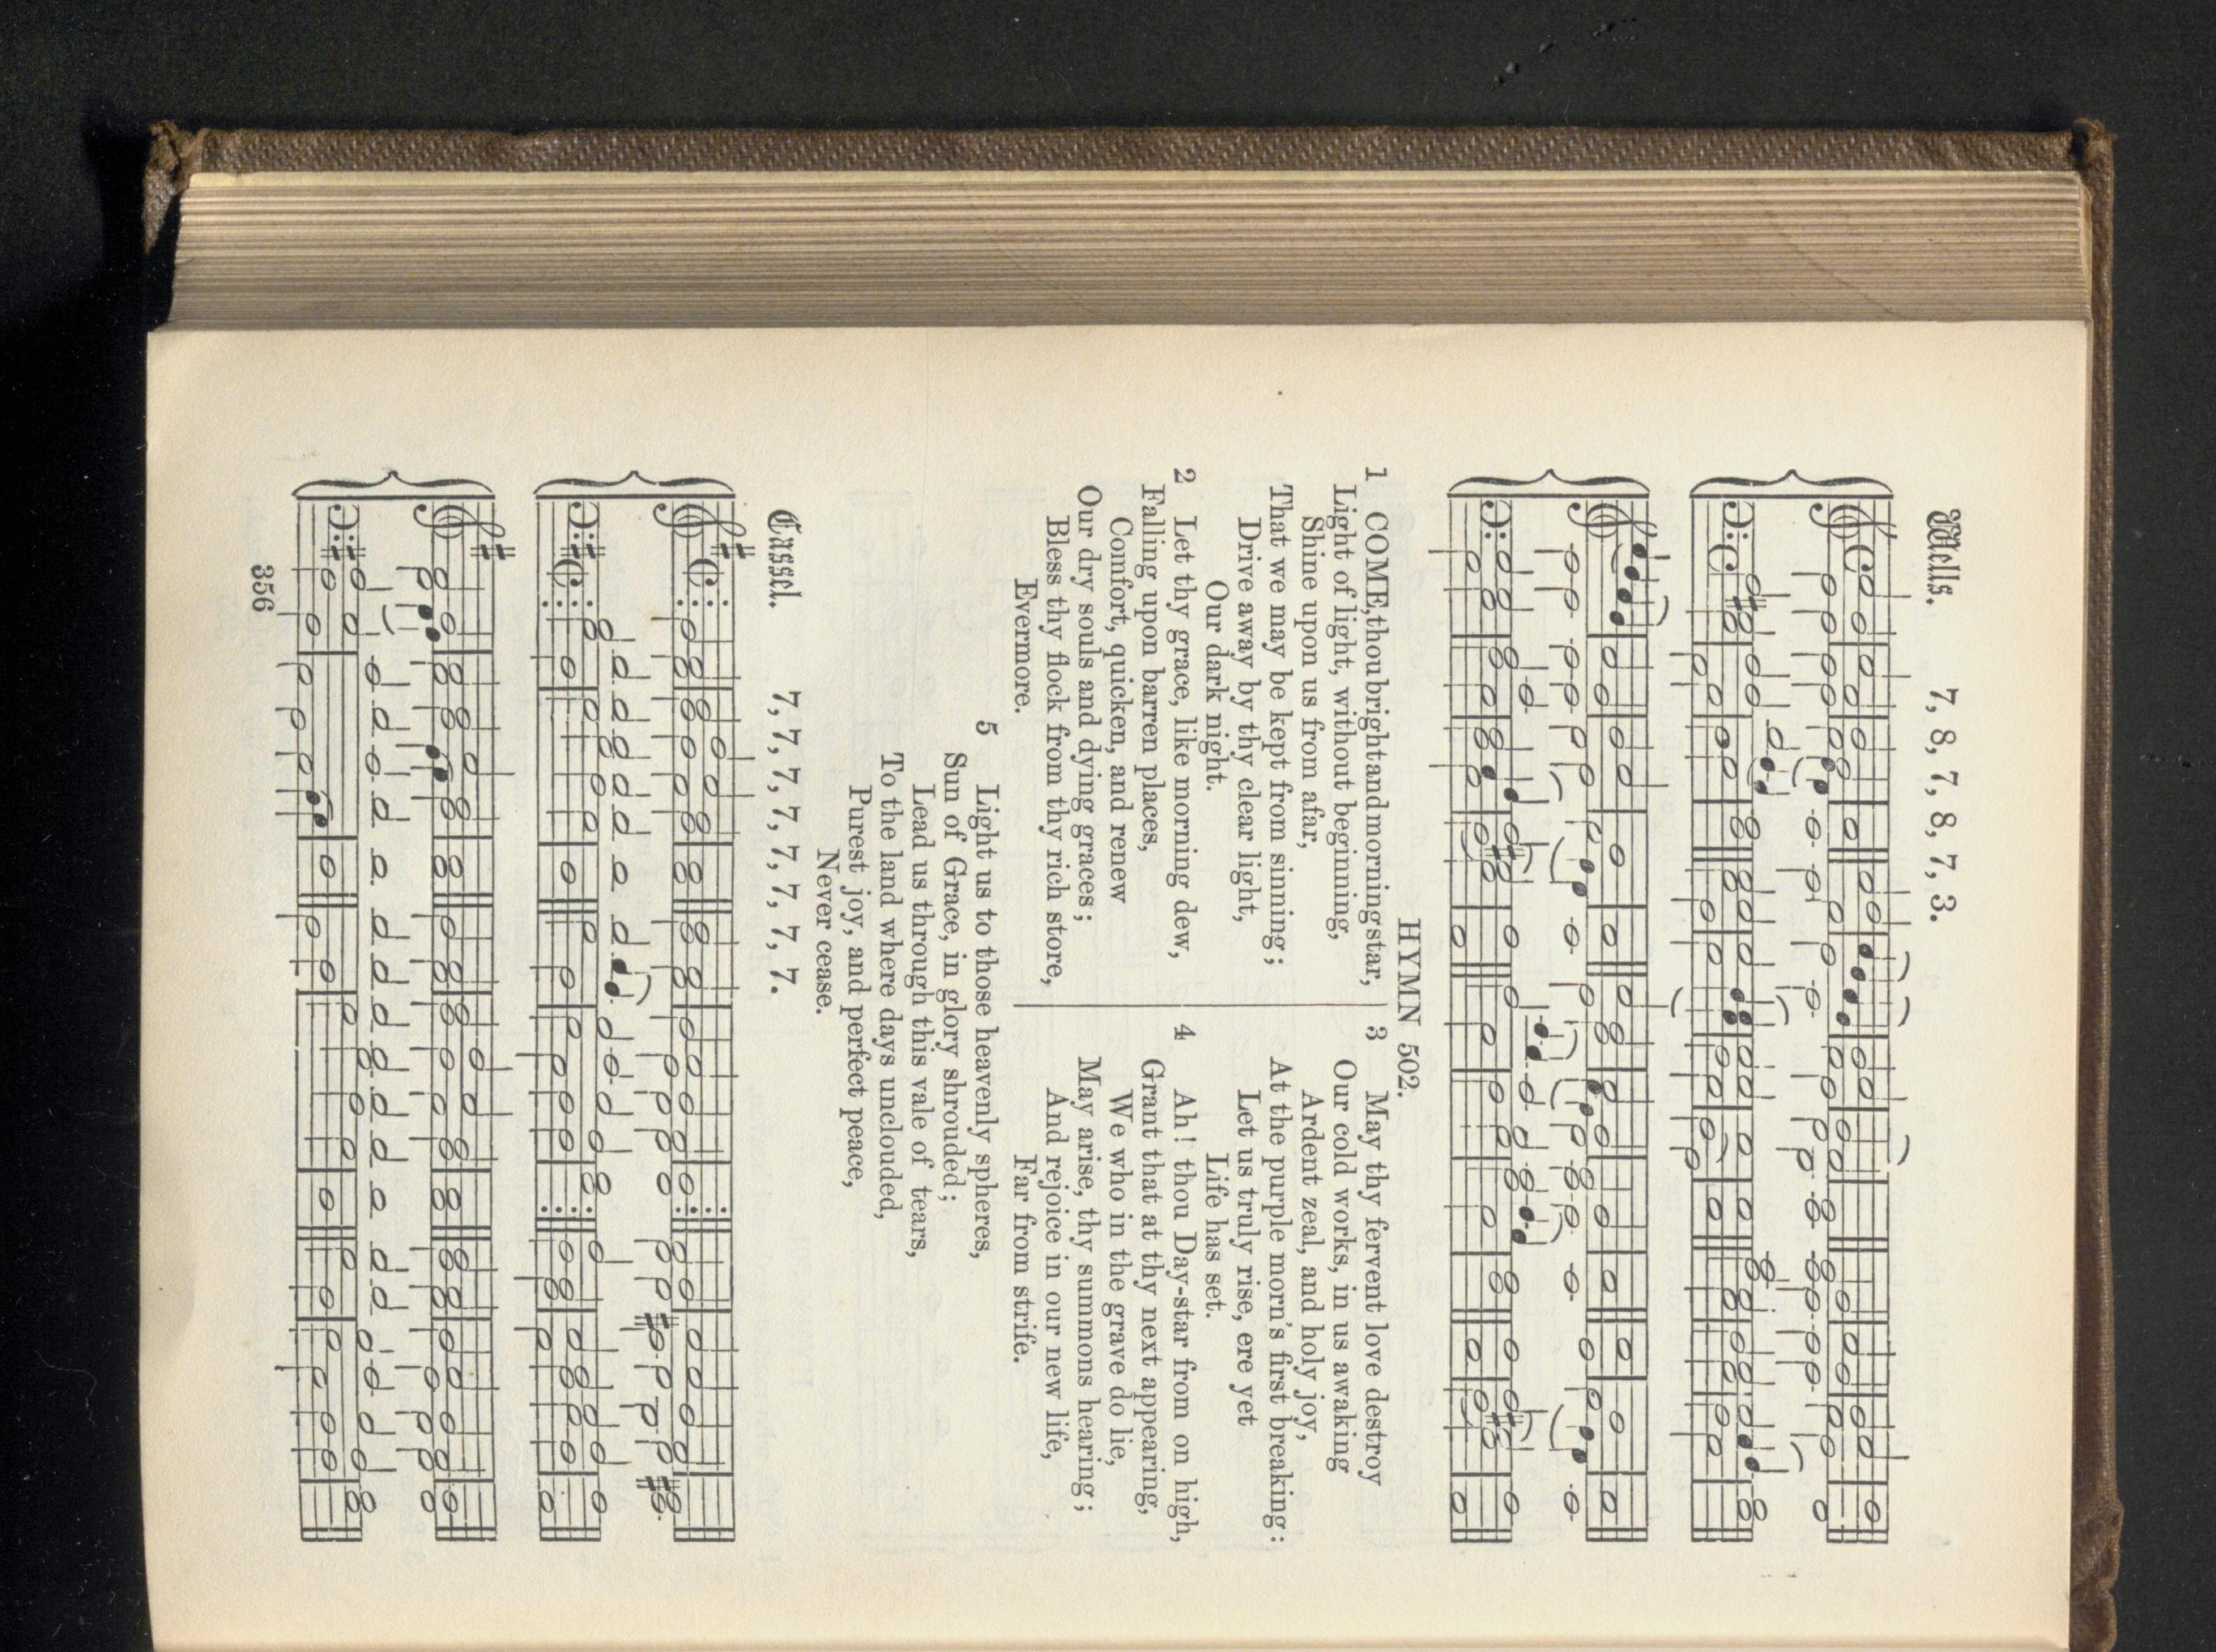 Wells. 7, 8, 7, 8, 7, 3.
HYMN 502.
1 COME, thou bright and morning star,
Light of light, without beginning,
Shine upon us from afar,
That we may be kept from sinning;
Drive away by thy clear light,
Our dark night.
2 Let thy grace, like morning dew,
Falling upon barren places,
Comfort, quicken, and renew
Our dry souls and dying graces;
Bless thy flock from thy rich store,
Evermore.
3 May thy fervent love destroy
Our cold works, in us awaking
Ardent zeal, and holy joy,
At the purple morn's first breaking:
Let us truly rise, ere yet
Life has set.
4 Ah! thou Day-star from on high,
Grant that at thy next appearing,
We who in the grave do lie,
May arise, thy summons hearing;
And rejoice in our new life,
Far from strife.
5 Light us to those heavenly spheres,
Sun of Grace, in glory shrouded;
Lead us through this vale of tears,
To the land where days unclouded,
Purest joy, and perfect peace,
Never cease.
Cassel. 7, 7, 7, 7, 7, 7, 7, 7.
356